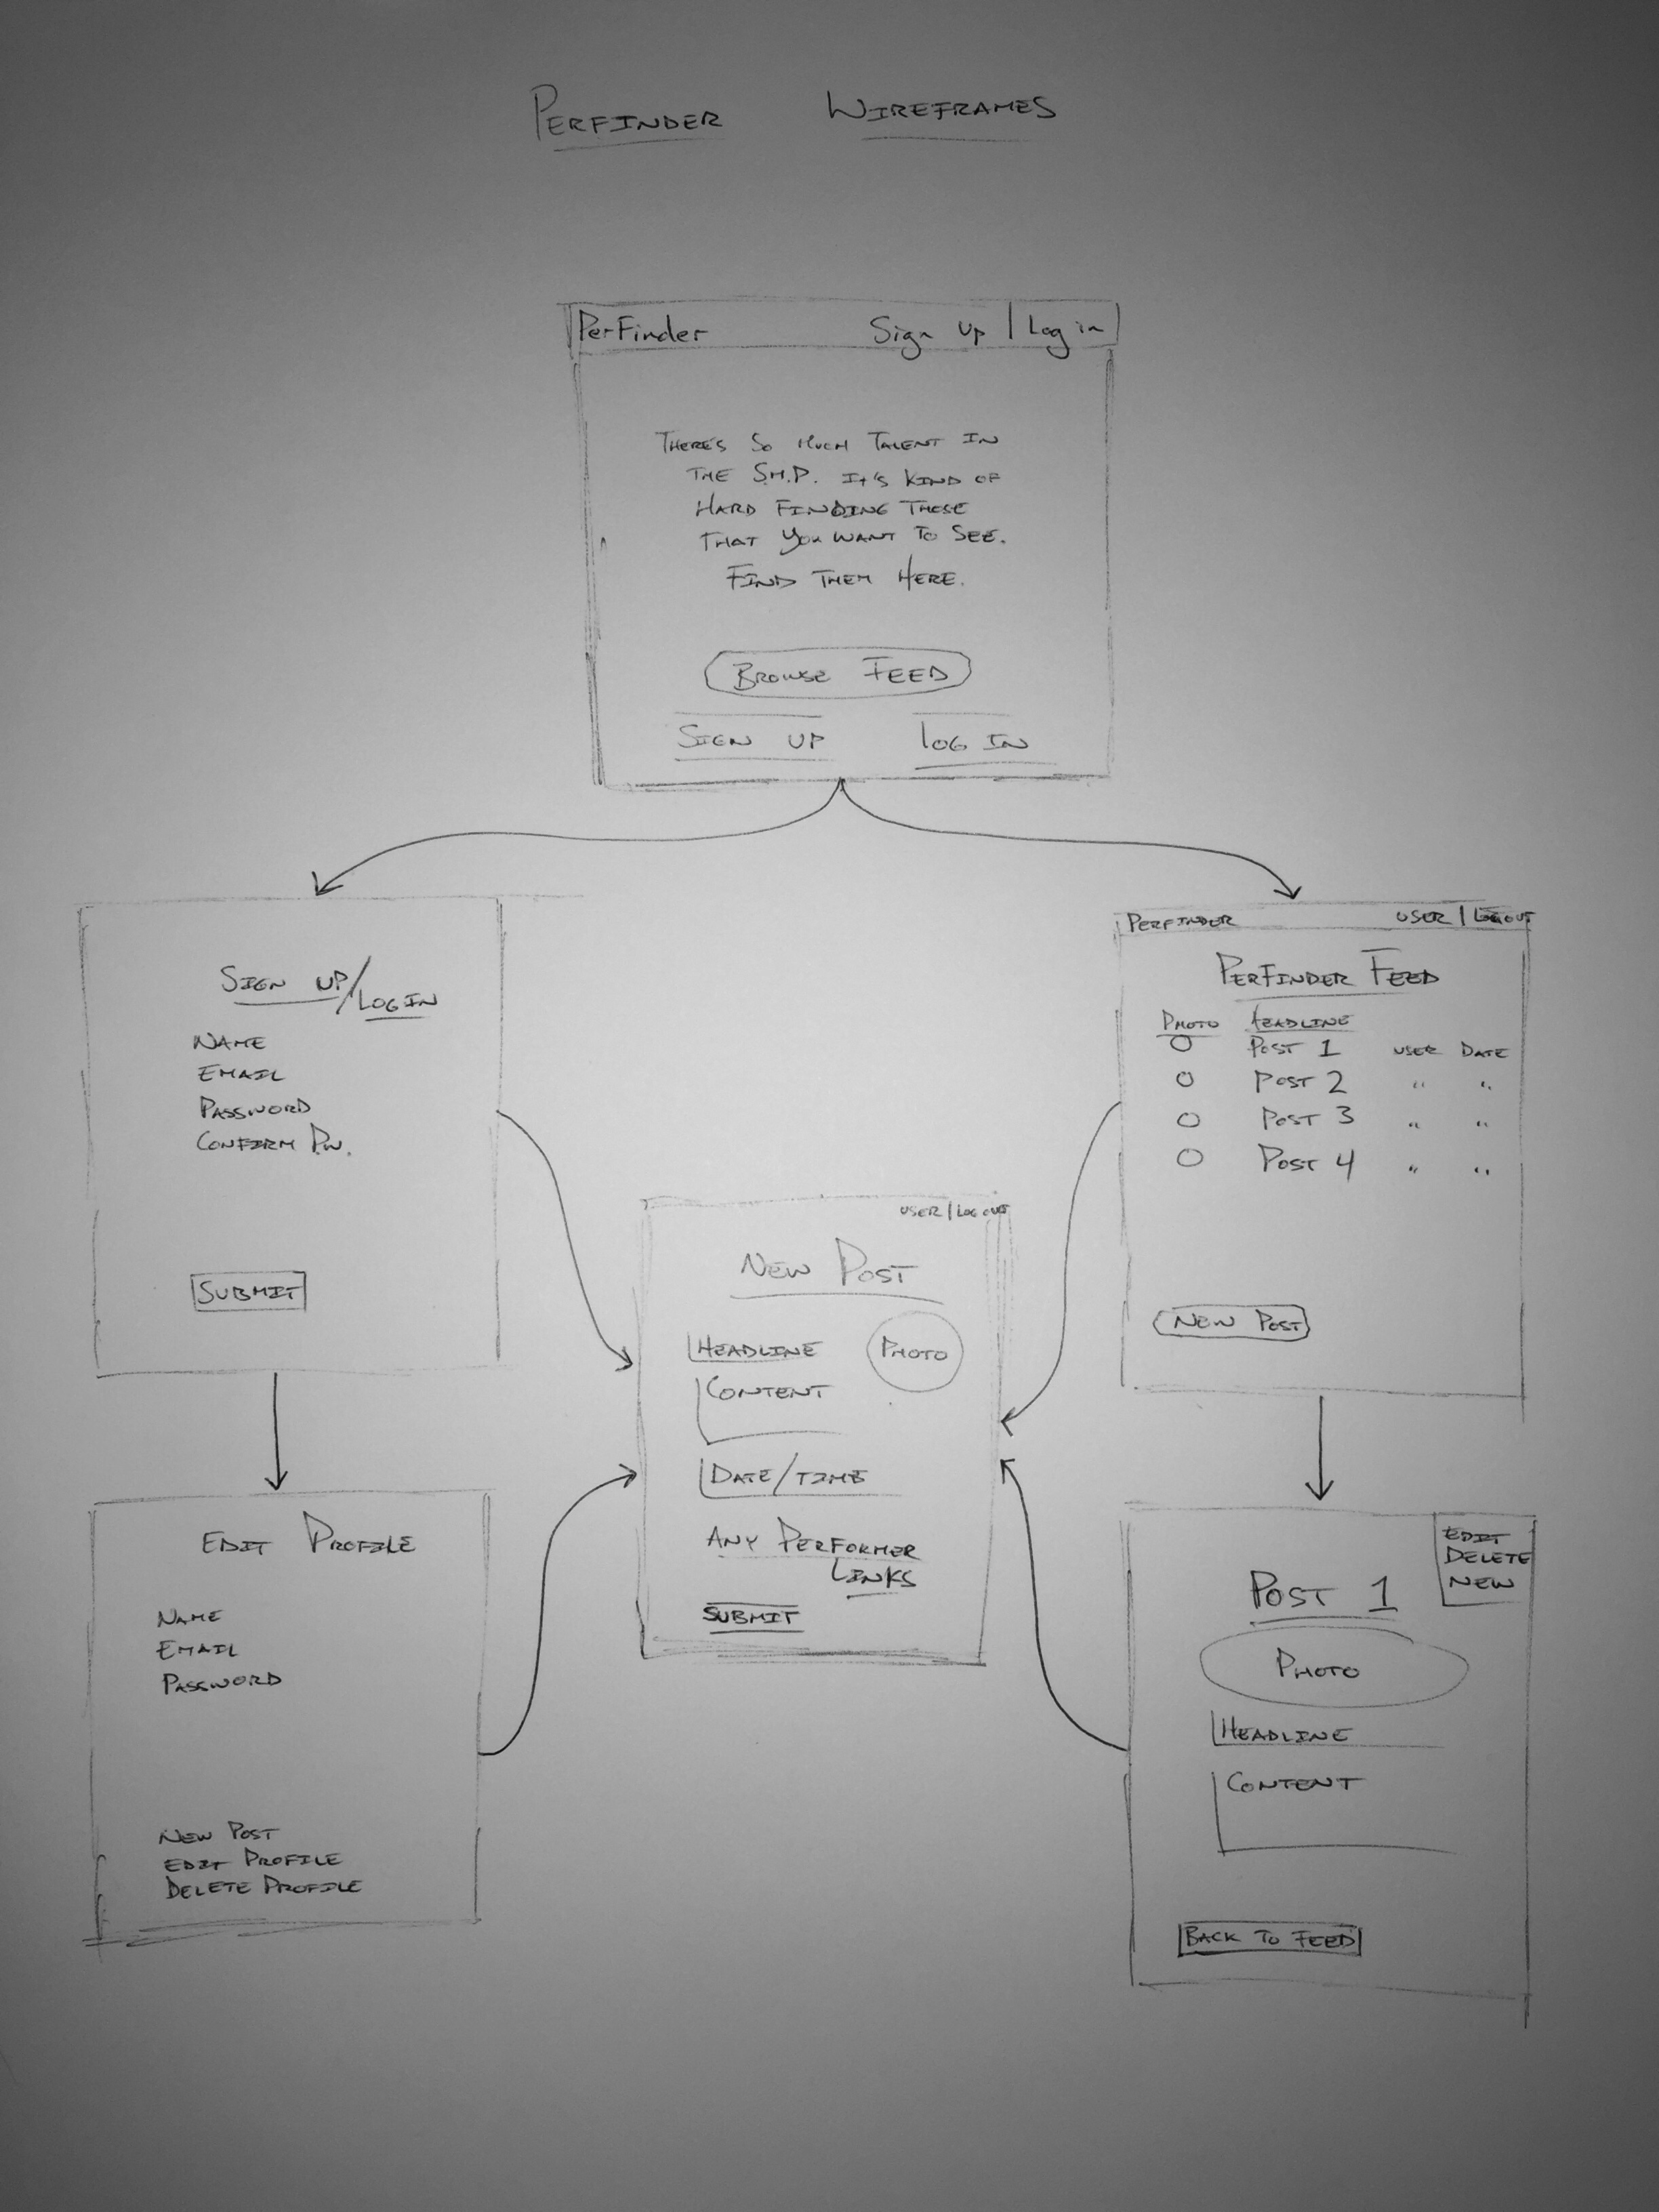 PERFINDER WIREFRAMES
PerFinder Sign Up | Log in
THERE'S SO MUCH TALENT IN
THE S.M.P. IT'S KIND OF
HARD FINDING THOSE
THAT YOU WANT TO SEE.
FIND THEM HERE.
BROWSE FEED
SIGN UP LOG IN
SIGN UP/LOGIN
NAME
EMAIL
PASSWORD
CONFIRM P.W.
SUBMIT
PERFINDER USER | LOGOUT
PERFINDER FEED
PHOTO HEADLINE
POST 1 USER DATE
POST 2 " "
POST 3 " "
POST 4 " "
NEW POST
USER | LOG OUT
NEW POST
HEADLINE PHOTO
CONTENT
DATE/TIME
ANY PERFORMER
LINKS
SUBMIT
EDIT PROFILE
NAME
EMAIL
PASSWORD
NEW POST
EDIT PROFILE
DELETE PROFILE
EDIT
DELETE
NEW
POST 1
PHOTO
HEADLINE
CONTENT
BACK TO FEED